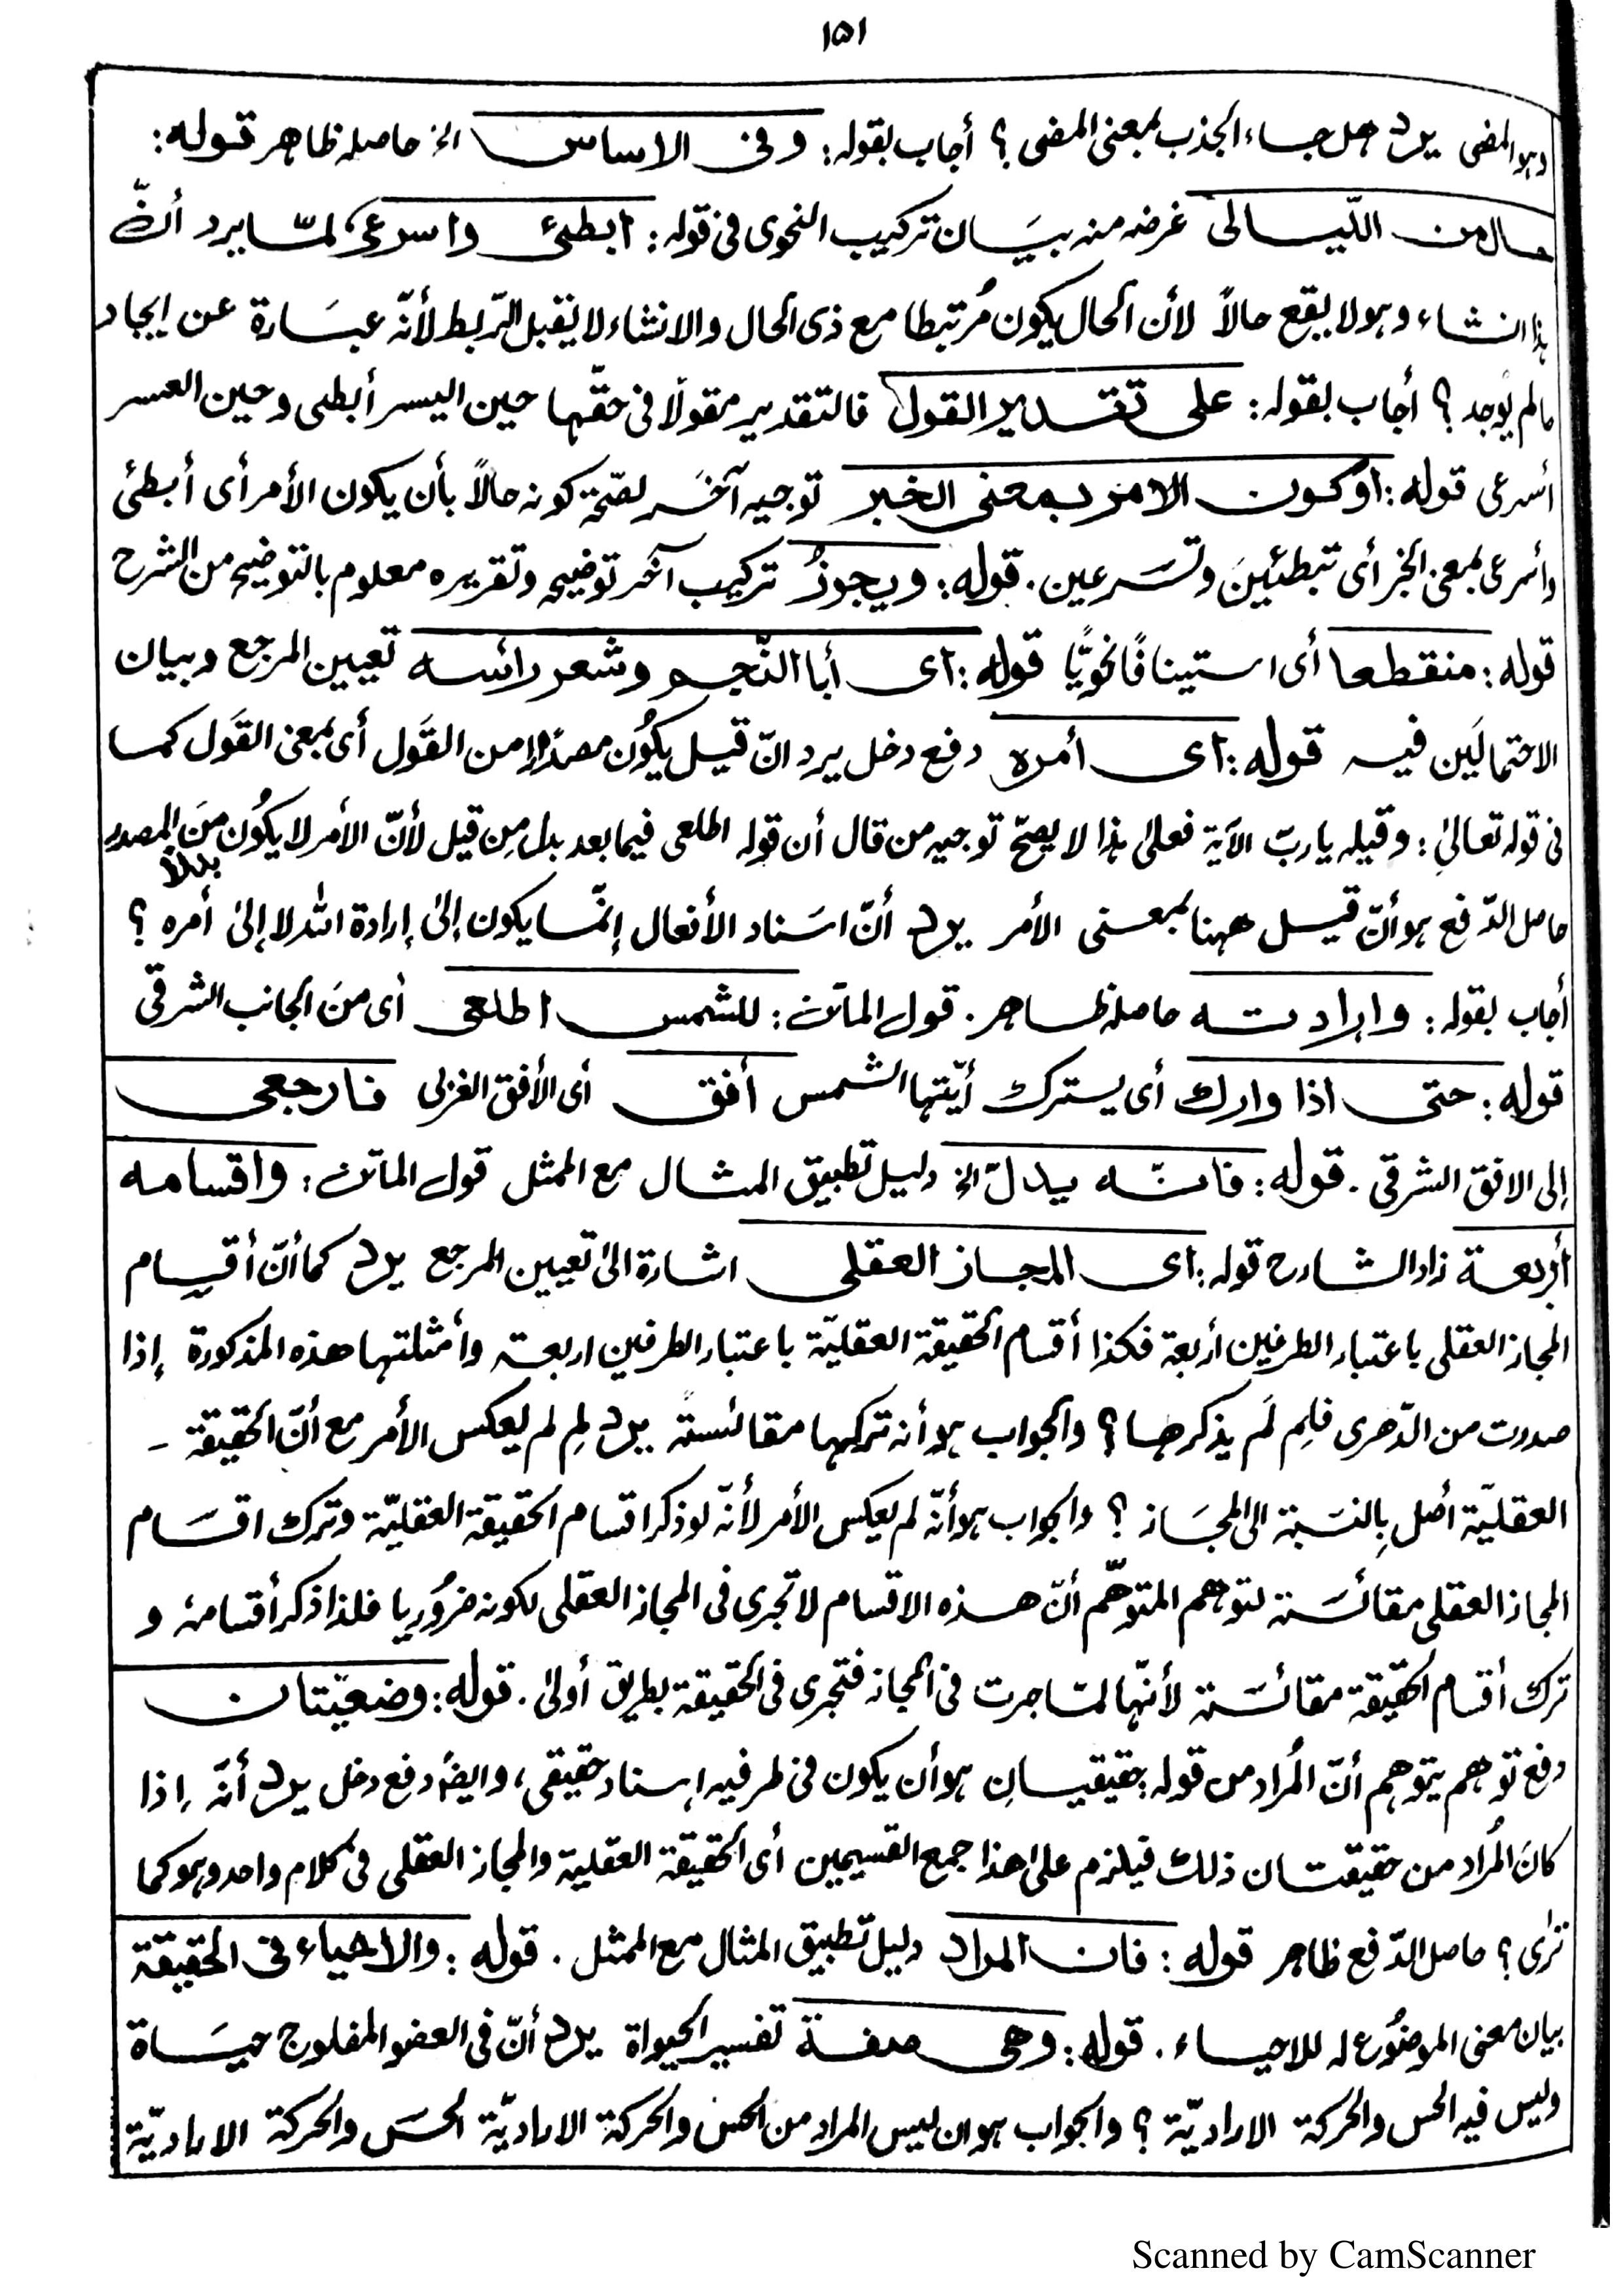 ١٥١
وهو المضى يرد هل جاء الجذب بمعنى المضى ؟ أجاب بقوله : وفى الاساس الخ حاصله ظاهر قوله :
حال من اللّيالى غرضه منه بيَان تركيب النحوى فى قوله : ابطئى واسرعى لمّا يرد أنّ
هذا انشاء وهو لا يقع حالاً لأن الحال يكون مُرتبطا مع ذى الحال والانشاء لا يقبل الرّبط لأنّه عبَارة عن إيجاد
مالم يُوجد ؟ أجاب بقوله : على تقدير القول فالتقدير مقولًا فى حقّها حين اليسر أبطى وحين العسر
أسرعى قوله : أو كون الامر بمعنى الخبر توجيه آخَر لصحّة كونه حالاً بأن يكون الأمر أى أبطئى
وأسرعى بمعنى الخبر أى تبطئينَ وتسَرعين . قوله : ويجوزُ تركيب آخر توضيحه وتقريره معلوم بالتوضيح من الشرح
قوله : منقطعا أى استينافًا نحويًّا قوله : اى أبا النّجم وشعر رائسه تعيين المرجع وبيان
الاحتمالَين فيه قوله : اى أمره دفع دخل يرد انّ قيل يكُون مصدرًا من القَول أى بمعنى القَول كما
فى قوله تعالىٰ : وقيله يا ربّ الآية فعلىٰ هذا لا يصحّ توجيه من قال أن قوله اطلعى فيما بعد بدل مِن قيل لأنّ الأمر لا يكُون منَ المصدر
بدلاً
حاصل الدّفع هو أنّ قيل ههنا بمعنى الأمر يرد أنّ اسَناد الأفعال إنّما يكون إلىٰ إرادة الله لا إلىٰ أمره ؟
أجاب بقوله : وارادته حاصله ظاهر . قول الماتن : للشمس اطلعى أى منَ الجانب الشرقى
قوله : حتى اذا وارك أى يسترك أيّتها الشمس أفق أى الأفق الغربى فارجعى
إلى الافق الشرقى . قوله : فانّه يدلّ الخ دليل تطبيق المثال مع الممثل قول الماتن : واقسامه
أربعة زاد الشارح قوله : اى المجاز العقلى اشارة الىٰ تعيين المرجع يرد كما أنّ أقسام
المجاز العقلى باعتبار الطرفين أربعة فكذا أقسام الحقيقة العقليّة باعتبار الطرفين اربعة وأمثلتها هذه المذكورة إذا
صدرت من الدّهرى فلِم لَم يذكرها ؟ والجواب هو أنه تركها مقائسةً يرد لِم لم يعكس الأمر مع أنّ الحقيقة -
العقليّة أصل بِالنسَبة الى المجَاز ؟ والجواب هو أنّه لم يعكس الأمر لأنّه لو ذكر اقسام الحقيقة العقليّة وترك اقسَام
المجاز العقلى مقائسَة لتوهم المتوهّم أنّ هذه الاقسام لا تجرى فى المجاز العقلى لكونه ضرُوريا فلذا ذكر أقسامهٔ و
ترك أقسام الحقيقة مقائسَة لأنهّا لمّا جرت فى المجاز فتجرى فى الحقيقة بطريق أولىٰ . قوله : وضعيّتان
دفع توهم يتوهم أنّ المُراد من قوله حقيقيان هو أن يكون فى طرفيه اسناد حقيقى ، وايضًا دفع دخل يرد أنّه اذا
كانَ المُراد من حقيقتان ذلك فيلزم علىٰ هذا جمع القسيمين أى الحقيقة العقلية والمجاز العقلى فى كلام واحد وهو كما
ترٰى ؟ حاصل الدّفع ظاهر قوله : فان المراد دليل تطبيق المثال مع الممثل . قوله : والاحياء فى الحقيقة
بيان معنى الموضُوع له للاحياء . قوله : وهى صفة تفسير الحيواة يرد أنّ فى العضو المفلوج حيَاة
وليس فيه الحس والحركة الاراديّة ؟ والجواب هو ان ليس المراد من الحس والحركة الاراديّة الحسَ والحركة الاراديّة
Scanned by CamScanner